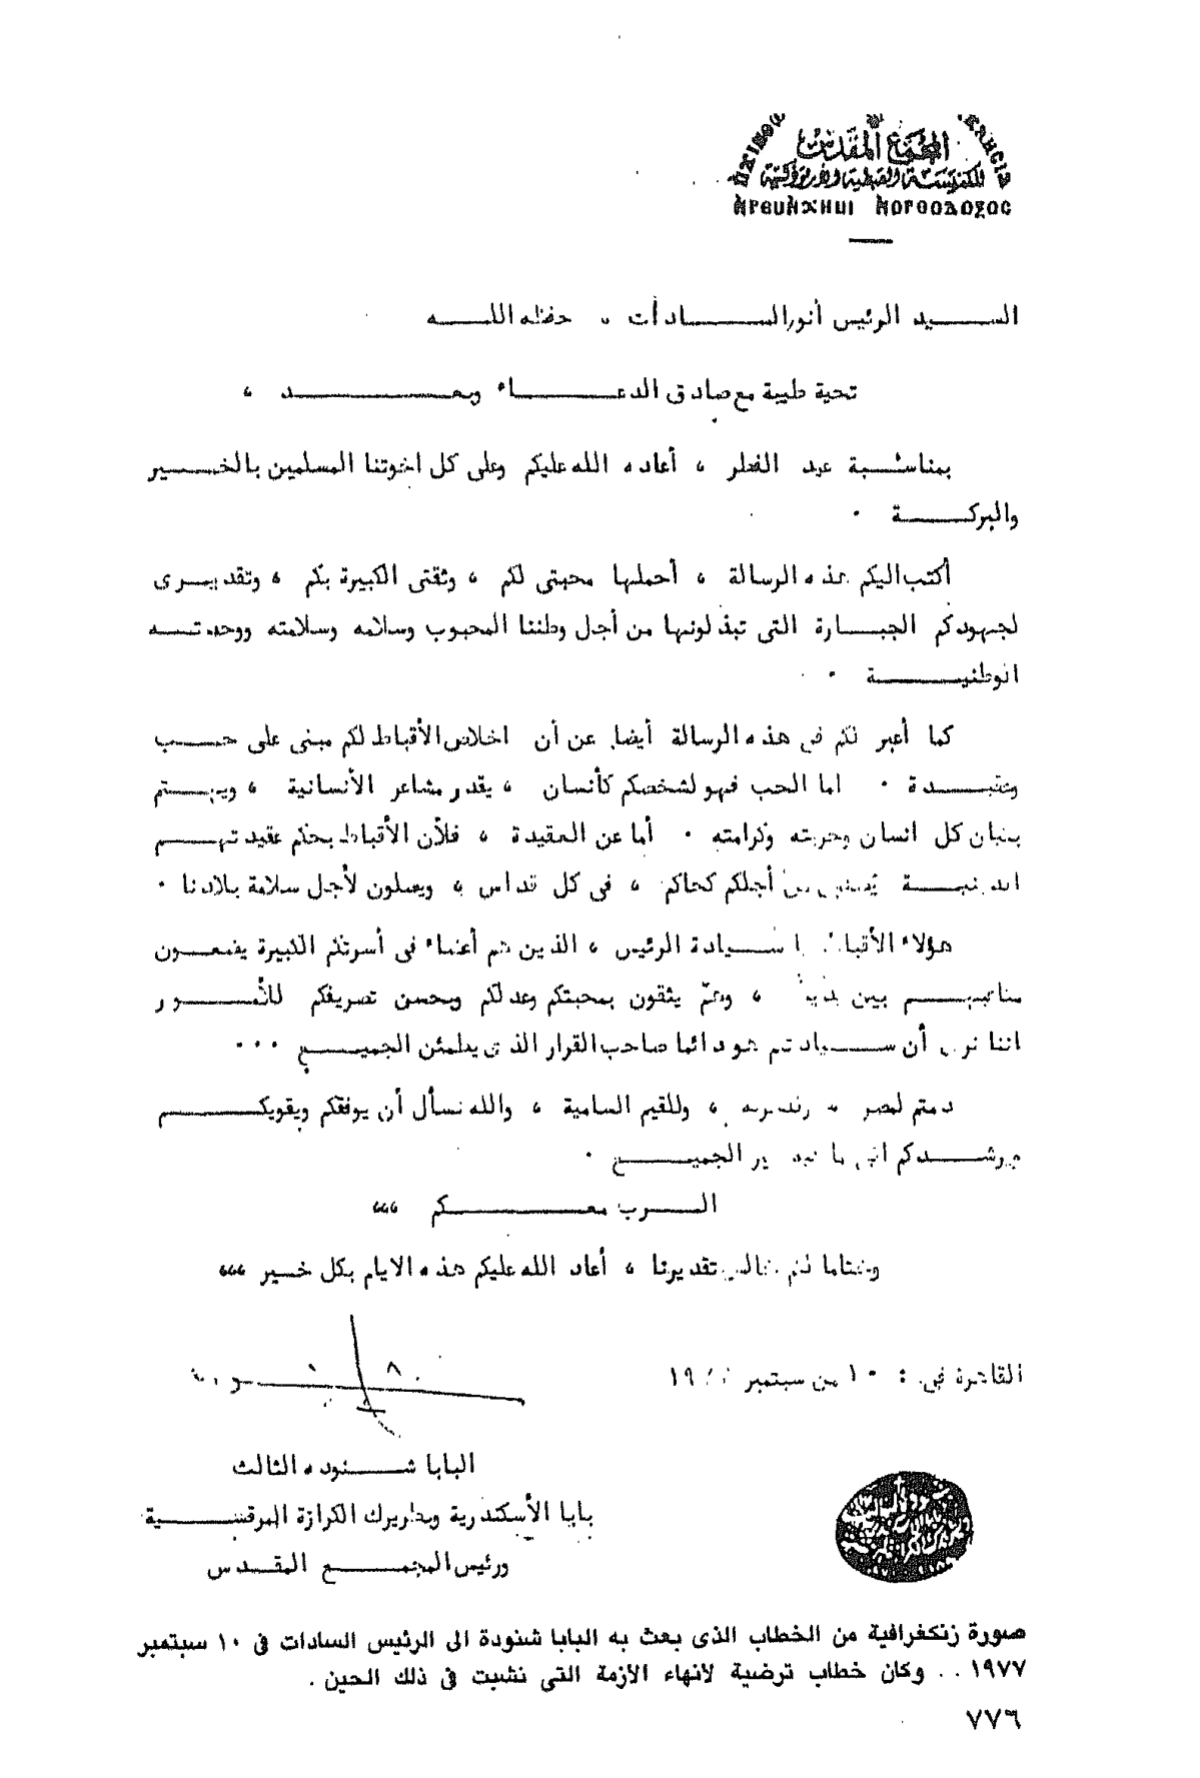 المجمع المقدس
للكنيسة القبطية الأرثوذكسية
السيد الرئيس أنور السادات ، حفظه الله
تحية طيبة مع صادق الدعاء وبعد ،
بمناسبة عيد الفطر ، أعاده الله عليكم وعلى كل اخوتنا المسلمين بالخير
والبركة .
أكتب اليكم هذه الرسالة ، أحملها محبتى لكم ، وثقتى الكبيرة بكم ، وتقديرى
لجهودكم الجبارة التى تبذلونها من أجل وطننا المحبوب وسلامه وسلامته ووحدته
الوطنية .
كما أعبر لكم فى هذه الرسالة أيضا عن أن اخلاص الأقباط لكم مبنى على حب
وعقيدة . اما الحب فهو لشخصكم كأنسان ، يقدر مشاعر الأنسانية ، ويهتم
بنيان كل انسان وحريته وكرامته . أما عن العقيدة ، فلأن الأقباط بحكم عقيدتهم
الدينية يصلون من أجلكم كحاكم ، فى كل قداس ، ويصلون لأجل سلامة بلادنا .
هؤلاء الأقباط يا سيادة الرئيس ، الذين هم أعضاء فى أسرتكم الكبيرة يضعون
متاعبهم بين يديكم ، وهم يثقون بمحبتكم وعدلكم وبحسن تصريفكم للأمور
اننا نرى أن سيادتكم هو دائما صاحب القرار الذى يطمئن الجميع ...
دمتم لمصر ، ، وللقيم السامية ، والله نسأل أن يوفقكم ويقويكم
ويرشدكم الى ما فيه خير الجميع .
الرب معكم ،،،
وختاما لكم خالص تقديرنا ، أعاد الله عليكم هذه الايام بكل خير ،،،
القاهرة فى : ١٠ من سبتمبر ١٩٧٧
البابا شنوده الثالث
بابا الأسكندرية وبطريرك الكرازة المرقسية
ورئيس المجمع المقدس
صورة زنكغرافية من الخطاب الذى بعث به البابا شنودة الى الرئيس السادات فى ١٠ سبتمبر
١٩٧٧ .. وكان خطاب ترضية لانهاء الأزمة التى نشبت فى ذلك الحين .
٧٧٦